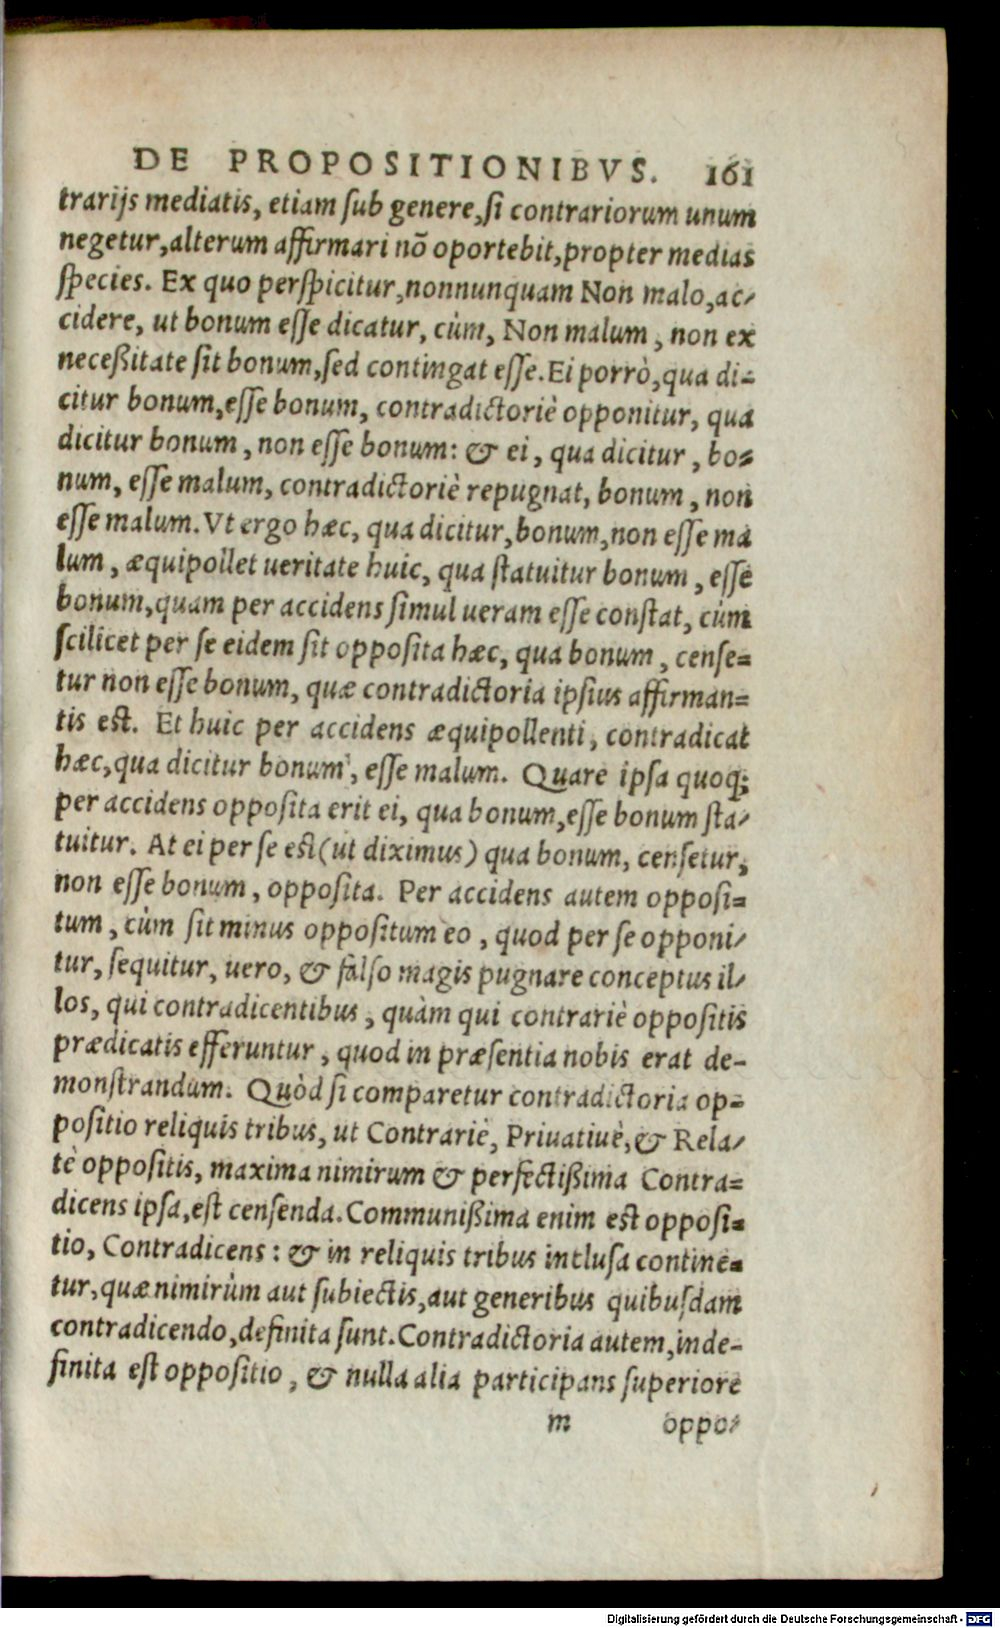 DE PROPOSITIONIBVS. 161
trarijs mediatis, etiam ſub genere,ſi contrariorum unum
negetur,alterum affirmari nõ oportebit,propter medias
ſpecies. Ex quo perſpicitur,nonnunquam Non malo,ac-
cidere, ut bonum eſſe dicatur, cùm, Non malum, non ex
neceßitate ſit bonum,ſed contingat eſſe.Ei porrò,qua di-
citur bonum,eſſe bonum, contradictoriè opponitur, qua
dicitur bonum, non eſſe bonum: & ei, qua dicitur, bo-
num, eſſe malum, contradictoriè repugnat, bonum, non
eſſe malum. Vt ergo hæc, qua dicitur, bonum,non eſſe ma
lum, æquipollet ueritate huic, qua ſtatuitur bonum, eſſe
bonum,quam per accidens ſimul ueram eſſe conſtat, cùm
ſcilicet per ſe eidem ſit oppoſita hæc, qua bonum, cenſe-
tur non eſſe bonum, quæ contradictoria ipſius affirman-
tis eſt. Et huic per accidens æquipollenti, contradicat
hæc,qua dicitur bonum, eſſe malum. Quare ipſa quoq;
per accidens oppoſita erit ei, qua bonum,eſſe bonum ſta-
tuitur. At ei per ſe eſt (ut diximus) qua bonum, cenſetur,
non eſſe bonum, oppoſita. Per accidens autem oppoſi-
tum, cùm ſit minus oppoſitum eo, quod per ſe opponi-
tur, ſequitur, uero, & falſo magis pugnare conceptus il-
los, qui contradicentibus, quàm qui contrariè oppoſitis
prædicatis efferuntur, quod in præſentia nobis erat de-
monſtrandum. Quòd ſi comparetur contradictoria op-
poſitio reliquis tribus, ut Contrariè, Priuatiuè,& Rela-
tè oppoſitis, maxima nimirum & perfectißima Contra-
dicens ipſa,eſt cenſenda.Communißima enim eſt oppoſi-
tio, Contradicens: & in reliquis tribus incluſa contine-
tur,quæ nimirùm aut ſubiectis,aut generibus quibuſdam
contradicendo,definita ſunt.Contradictoria autem,inde-
finita eſt oppoſitio, & nulla alia participans ſuperiore
m oppo-
Digitalisierung gefördert durch die Deutsche Forschungsgemeinschaft - DFG